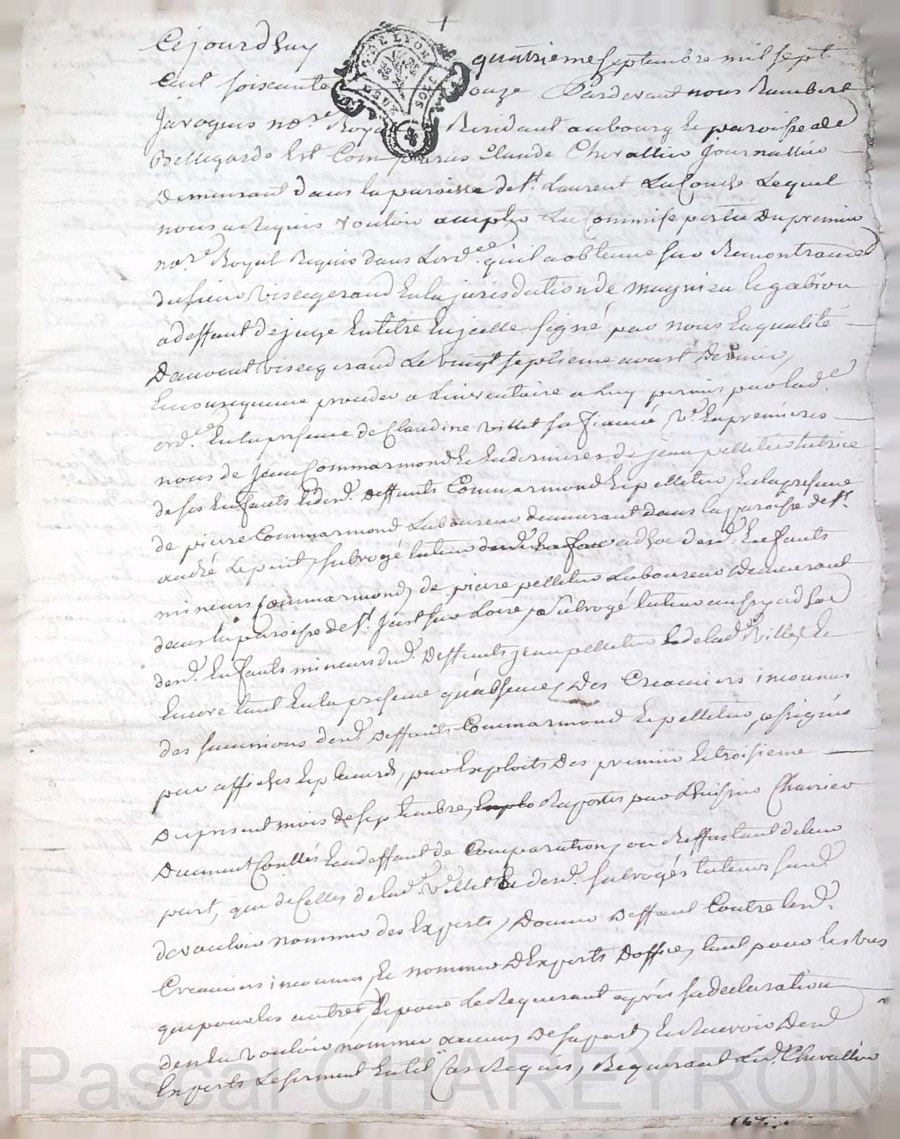 Cejourdhuy quatrieme septembre mil sept
Cent soixante onze Pardevant nous Rambert
Jaroquis no.re Royal Residant au bourg et paroisse de
Bellegarde Est Comparus Claude Chevallier Journallier
Demeurant dans la paroisse de St. Laurent La Conche Lequel
nous a Requis vouloir accepter La Commise portée Du premier
no.re Royal Requis dans Lord.ce qu'il a obtenue sur Remontrances
du sieur viseregerand En la jurisdiction de magnieu le gabion
a deffaut de juge En titre En jcelle signé par nous En qualité
D'ancient viseregerand Le vingt septieme aoust Dernier,
En consequence proceder a Linventaire a Luy permis par lad.e
ord.ce En la presence de Claudine Villet sa fiancé V.e En premieres
noces de Jean Commarmond Et En dernieres de jean pelletier tutrice
de ses Enfants Et desd. Deffunts Commarmond Et pelletier, En la presence
de pierre Commarmond Laboureur demeurant dans la paroisse de St.
andré Le puit, subrogé tuteur desd. adhoc desd. Enfants
mineurs Commarmond, de pierre pelletier Laboureur Demeurant
dans la paroisse de St. Just sur Loire subrogé tuteur aussy adhoc
desd. Enfants mineurs dud. Deffunt jean pelletier de lad. Villet, Et
Encore tant En la presence qu'absence, Des Creanciers inconnus
des successions desd. Deffunts Commarmond Et pelletier, assignés
par affiches Et placards, par Exploits Des premier Et troisieme
Du present mois de septembre, Raportés par L'huissier Charrier
Duement Collés En deffaut de Comparution, ou Reffustant de leur
part, que de Celles de lad. V.e Villet Et desd. subrogés tuteurs
de vouloir nommer des Experts, Donner Deffaut Contre lesd.
Creanciers inconnus, Et nommer D'Experts D'office, tant pour les uns
que pour les autres, Et pour Le Requerant après sa declaration
den En vouloir nommer aucuns De sa part, Et Recevoir Desd.
Experts Le serment En tel Cas Requis, Requerant Led. Chevallier
Pascal CHAREYRON